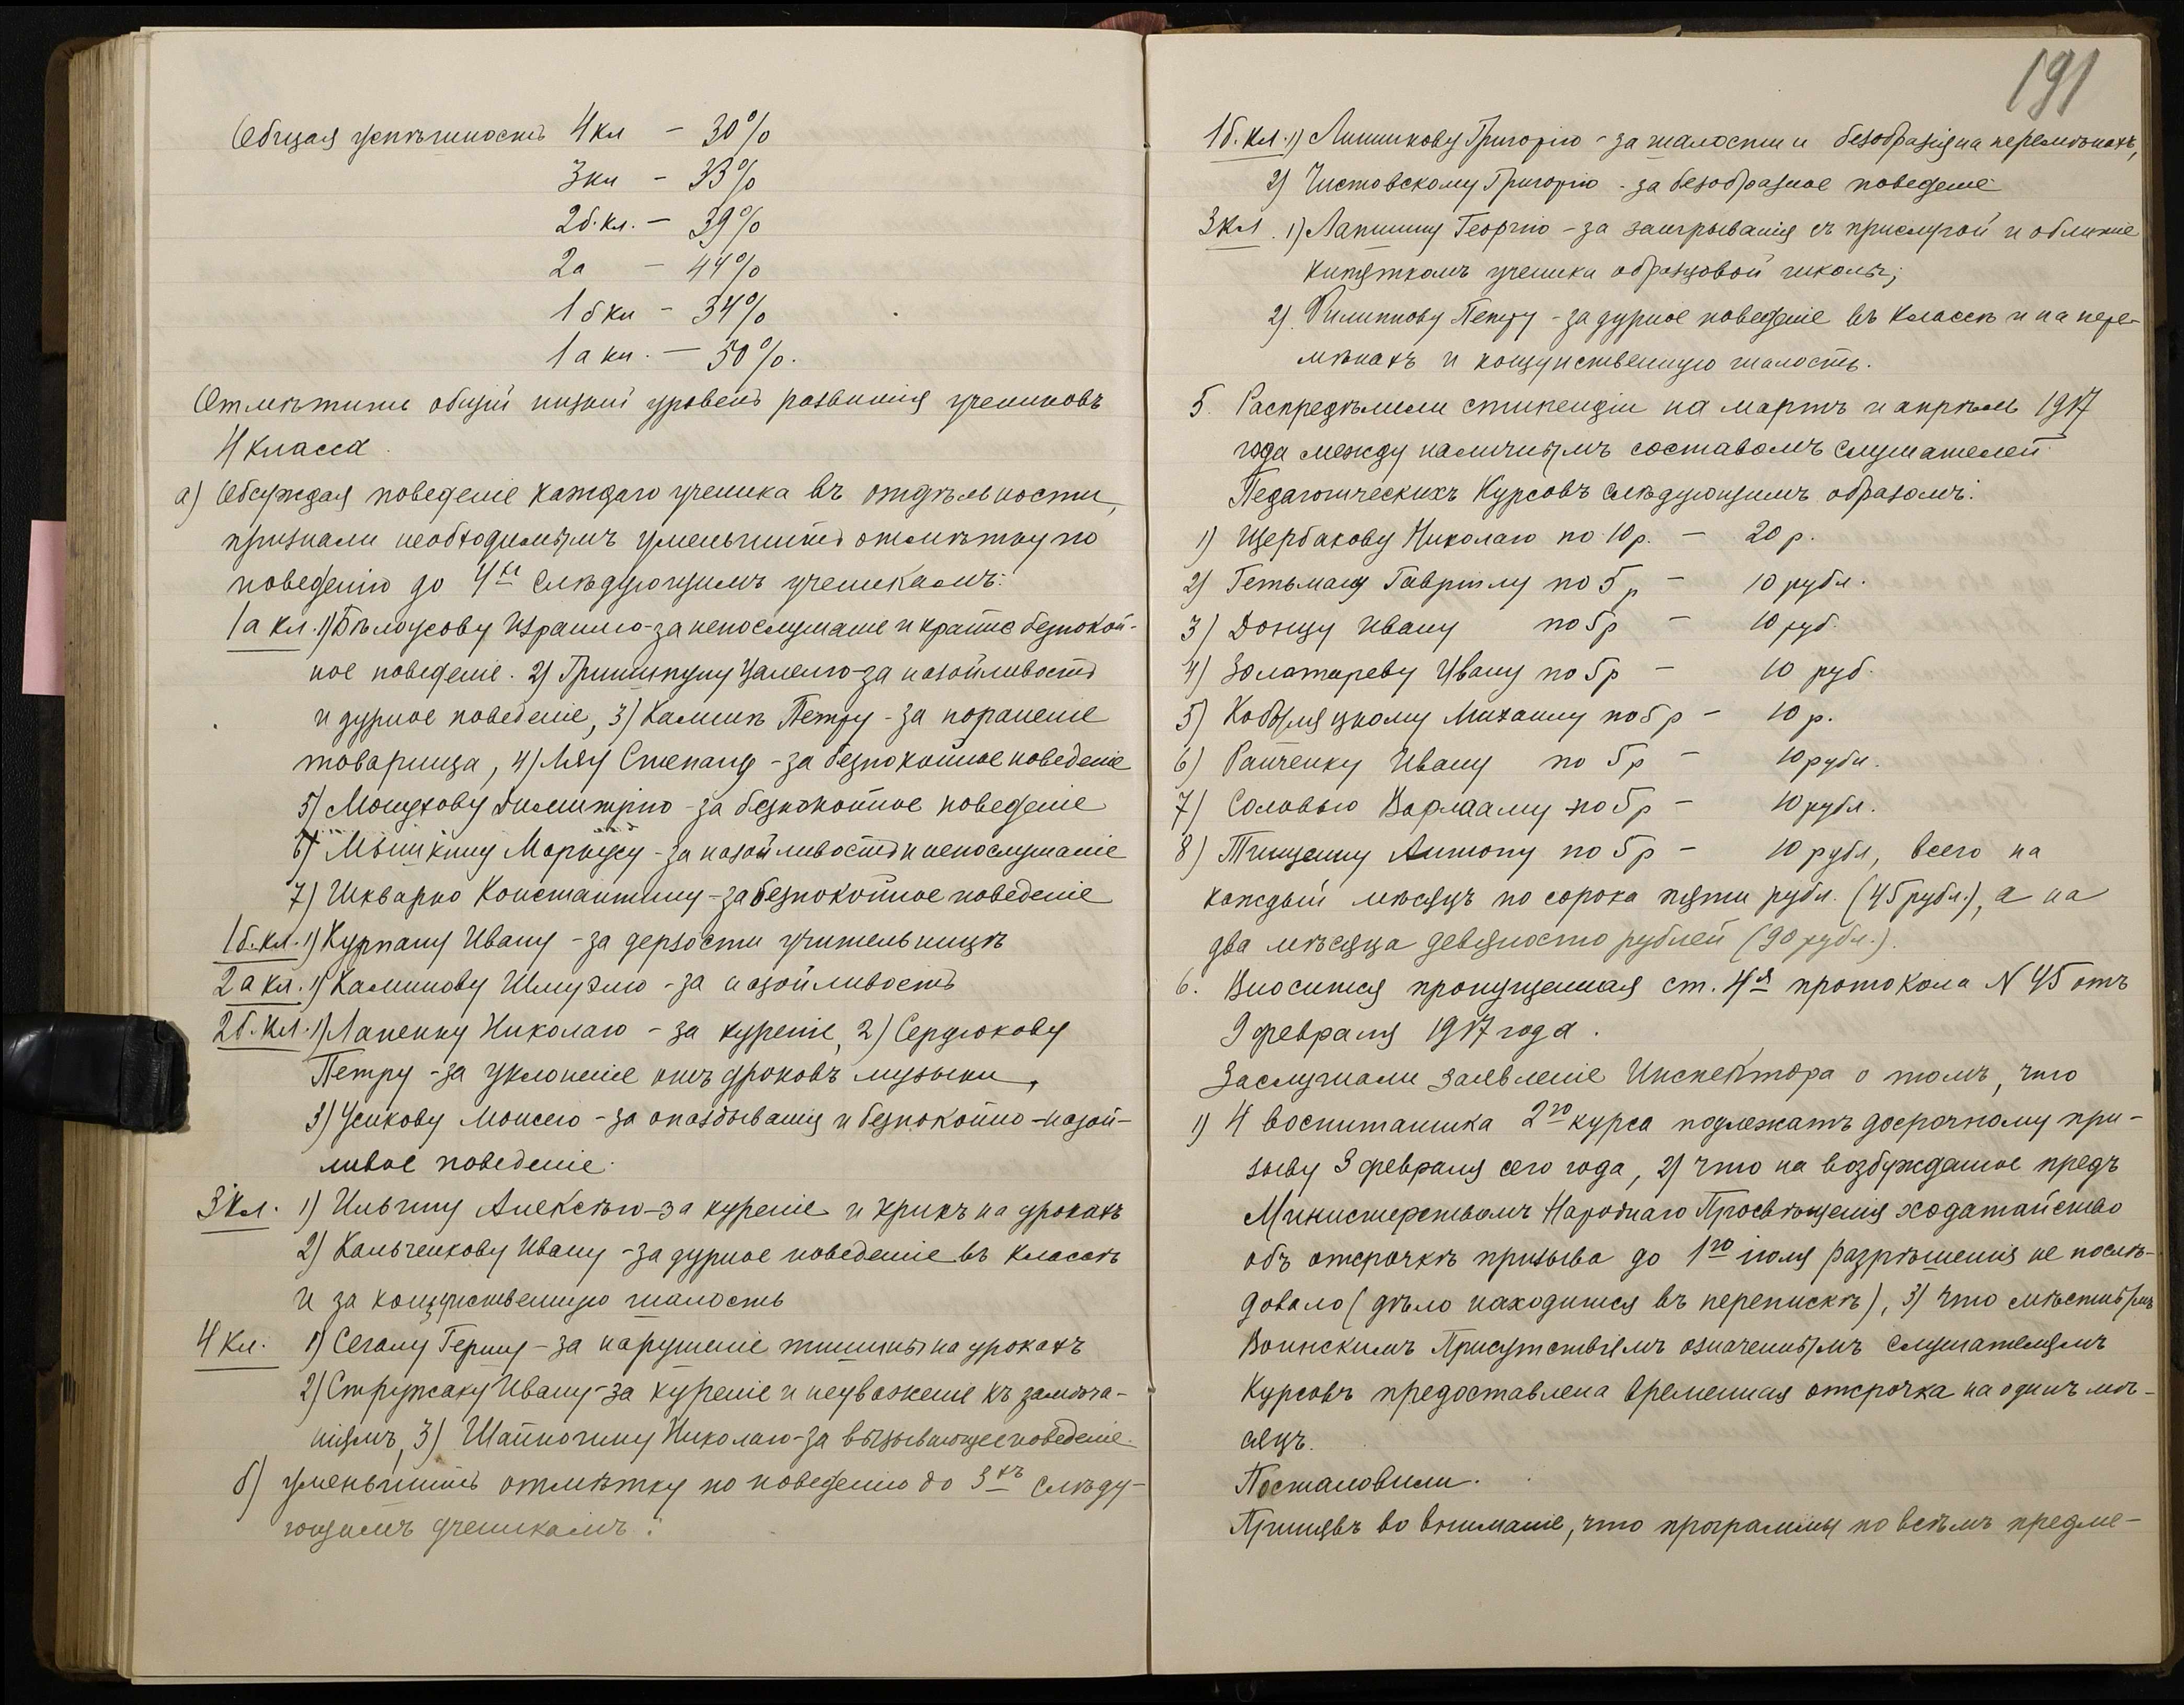 Общая успѣшность 4 кл – 30%
3 кл – 33%
2б. кл. – 39%
2а – 44%
1 б кл – 34%
1 а кл. – 50%.
Отмѣтить общій низкій уровень развитія учениковъ
4 класса.
а) Обсуждая поведеніе каждаго ученика въ отдѣльности,
признали необходимымъ уменьшить отмѣтку по
поведенію до 4хъ слѣдующимъ ученикамъ:
1а кл. 1) Бѣлоусову Израилю – за непослушаніе и крайне безпокой-
ное поведеніе. 2) Гришпуну – за назойливость
и дурное поведеніе, 3) Калинѣ Петру – за пораненіе
товарища, 4) Ляху Степану – за безпокойное поведеніе
5) Мощухову Димитрію – за безпокойное поведеніе
6) Мышкину Маркусу – за назойливость и непослушаніе
7) Шкварко Константину – за безпокойное поведеніе
1б. кл. 1) Курпану Ивану – за дерзости учительницѣ
2а кл. 1) Калинову Шмуэлю – за назойливость
2б. кл. 1) Лапенку Николаю – за куреніе, 2) Сердюкову
Петру – за уклоненіе отъ уроковъ музыки,
3) Усикову Моисею – за опаздыванія и безпокойно-назой-
ливое поведеніе.
3 кл. 1) Ильину Алексѣю – за куреніе и крикъ на урокахъ
2) Кальченкову Ивану – за дурное поведеніе въ классѣ
и за кощунственную шалость
4 кл. 1) Сегалу Гершу – за нарушеніе тишины на урокахъ
2) Стружаку Ивану – за куреніе и неуваженіе къ замѣча-
ніямъ, 3) Шапкочину Николаю – за вызывающее поведеніе.
б) уменьшить отмѣтку по поведенію до 3хъ слѣду-
ющимъ ученикамъ:
191
1б. кл. 1) Лишикову Григорію – за шалости и безобразія на перемѣнахъ,
2) Чистовскому Григорію – за безобразное поведеніе
3 кл. 1) Лапшину Георгію – за заигрыванія съ прислугой и облитіе
кипяткомъ ученика образцовой школы;
2) Филиппову Петру – за дурное поведеніе въ классѣ и на пере-
мѣнахъ и кощунственную шалость.
5. Распредѣлили стипендіи на мартъ и апрѣль 1917
года между наличнымъ составомъ слушателей
Педагогическихъ Курсовъ слѣдующимъ образомъ:
1) Щербакову Николаю по 10 р. – 20 р.
2) Гетьману Гавріилу по 5 р – 10 рубл.
3) Донцу Ивану по 5 р – 10 руб.
4) Золотареву Ивану по 5 р – 10 руб.
5) Кобыляцкому Михаилу по 5 р – 10 р.
6) Райченку Ивану по 5 р – 10 рубл.
7) Соловью Варлааму по 5 р – 10 рубл.
8) Тищенку Антону по 5 р – 10 рубл, всего на
каждый мѣсяцъ по сорока пяти рубл. (45 рубл.), а на
два мѣсяца девяносто рублей (90 рубл.).
6. Вносится пропущенная ст. 4я протокола N 45 отъ
9 февраля 1917 года.
Заслушали заявленіе Инспектора о томъ, что
1) 4 воспитанника 2го курса подлежатъ досрочному при-
зыву 3 февраля сего года, 2) что на возбужденное предъ
Министерствомъ Народнаго Просвѣщенія ходатайство
объ отсрочкѣ призыва до 1го іюля разрѣшенія не послѣ-
довало (дѣло находится въ перепискѣ), 3) что мѣстнымъ
Воинскимъ Присутствіемъ означеннымъ слушателямъ
Курсовъ предоставлена временная отсрочка на одинъ мѣ-
сяцъ.
Постановили.
Принявъ во вниманіе, что программы по всѣмъ предме-